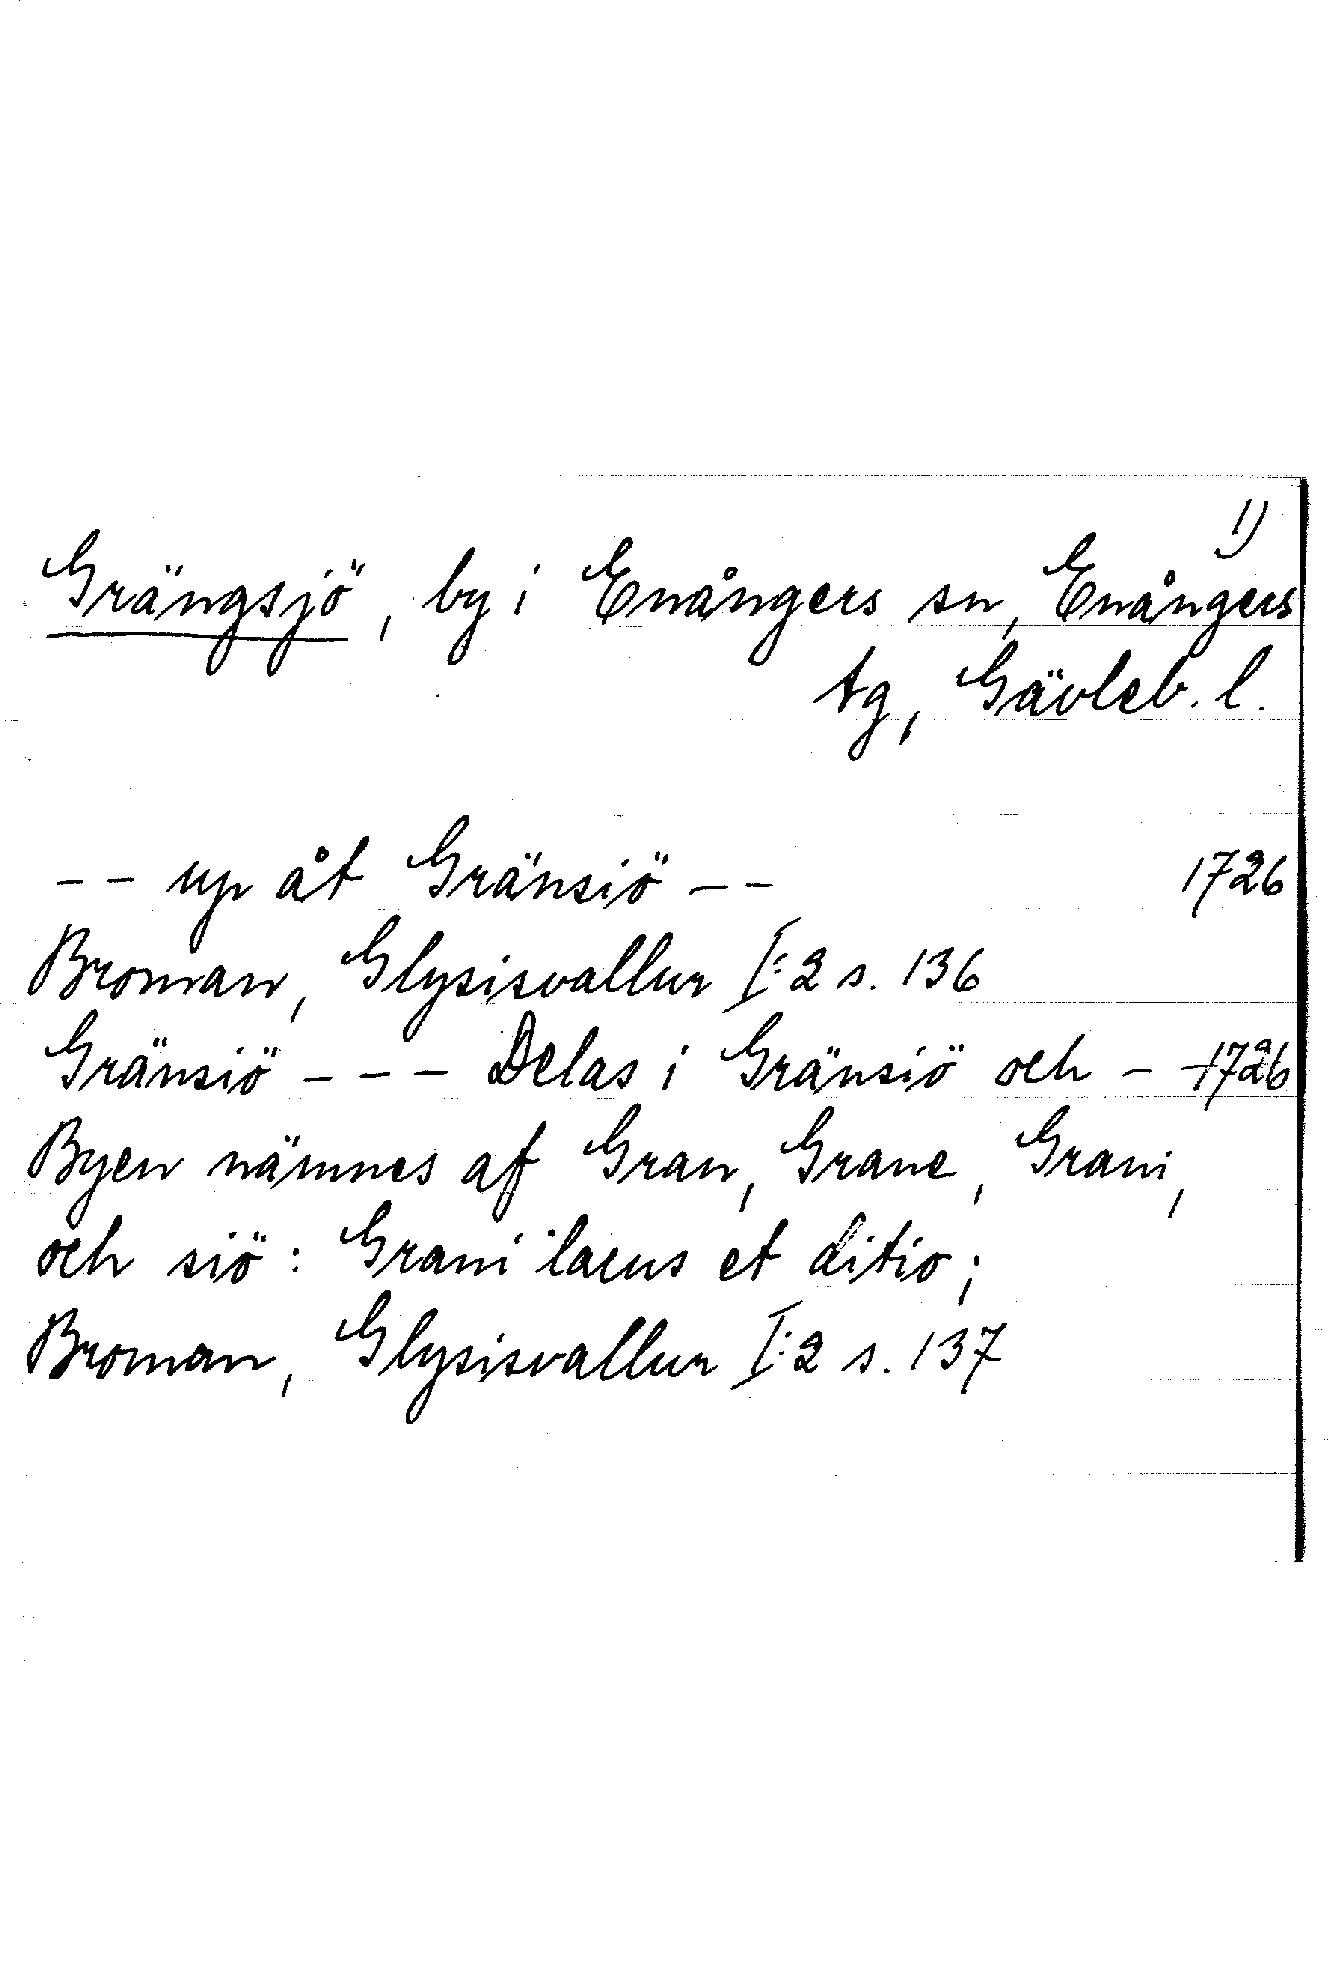 1)
Grängsjö, by i Enångers sn, Enångers
tg, Gävleb. l.
-- up åt Gränsiö -- 1726
Broman, Glysisvallur I:2 s. 136
Gränsiö --- Delas i Gränsiö och -- 1726
Byen nämnes af Gran, Grane, Grani,
och siö: Grani lacus et ditio;
Broman, Glysisvallur I:2 s. 137